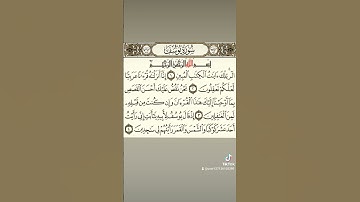 سُورَةُ يُوسُفَ
بِسْمِ اللَّهِ الرَّحْمَٰنِ الرَّحِيمِ
الٓر تِلْكَ ءَايَٰتُ ٱلْكِتَٰبِ ٱلْمُبِينِ ١ إِنَّآ أَنزَلْنَٰهُ قُرْءَٰنًا عَرَبِيًّا
لَّعَلَّكُمْ تَعْقِلُونَ ٢ نَحْنُ نَقُصُّ عَلَيْكَ أَحْسَنَ ٱلْقَصَصِ
بِمَآ أَوْحَيْنَآ إِلَيْكَ هَٰذَا ٱلْقُرْءَانَ وَإِن كُنتَ مِن قَبْلِهِۦ
لَمِنَ ٱلْغَٰفِلِينَ ٣ إِذْ قَالَ يُوسُفُ لِأَبِيهِ يَٰٓأَبَتِ إِنِّى رَأَيْتُ
أَحَدَ عَشَرَ كَوْكَبًا وَٱلشَّمْسَ وَٱلْقَمَرَ رَأَيْتُهُمْ لِى سَٰجِدِينَ ٤
TikTok